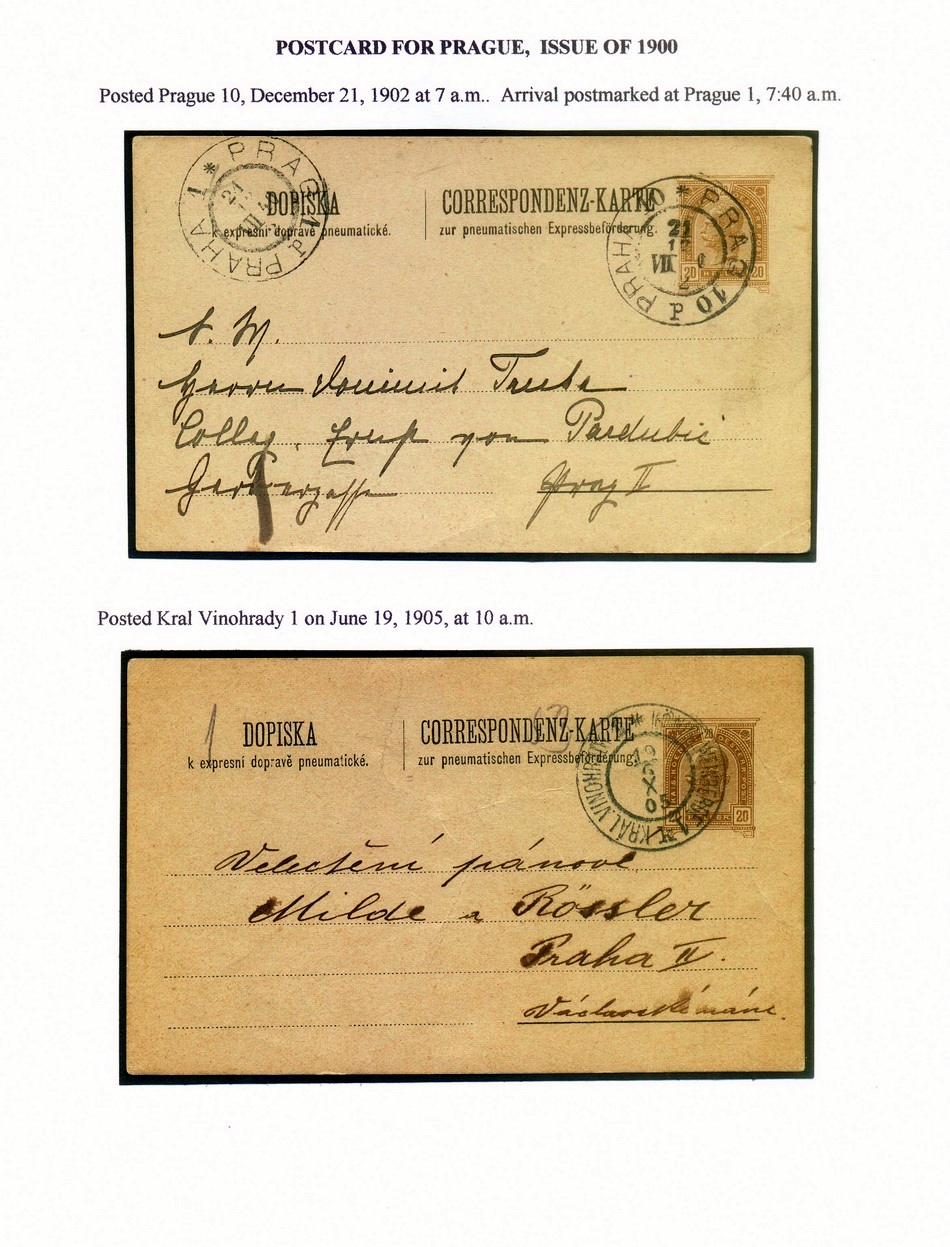 POSTCARD FOR PRAGUE, ISSUE OF 1900
Posted Prague 10, December 21, 1902 at 7 a.m.. Arrival postmarked at Prague 1, 7:40 a.m.
PRAG 1 PRAHA 1
21
DOPISKA
k expresní dopravě pneumatické.
CORRESPONDENZ-KARTE
zur pneumatischen Expressbeförderung.
PRAG 10 PRAHA 10
21
12
VII
2
20 20
N. W.
Herrn Dominik
Colleg. Ernst von Pardubic
Gerbergasse Prag II
Posted Kral Vinohrady 1 on June 19, 1905, at 10 a.m.
DOPISKA
k expresní dopravě pneumatické.
CORRESPONDENZ-KARTE
zur pneumatischen Expressbeförderung.
KRÁL. VINOHRADY 1
19
6
X
05
20
20
Velectění pánové
Milde a Rössler
Praha II.
Václavské